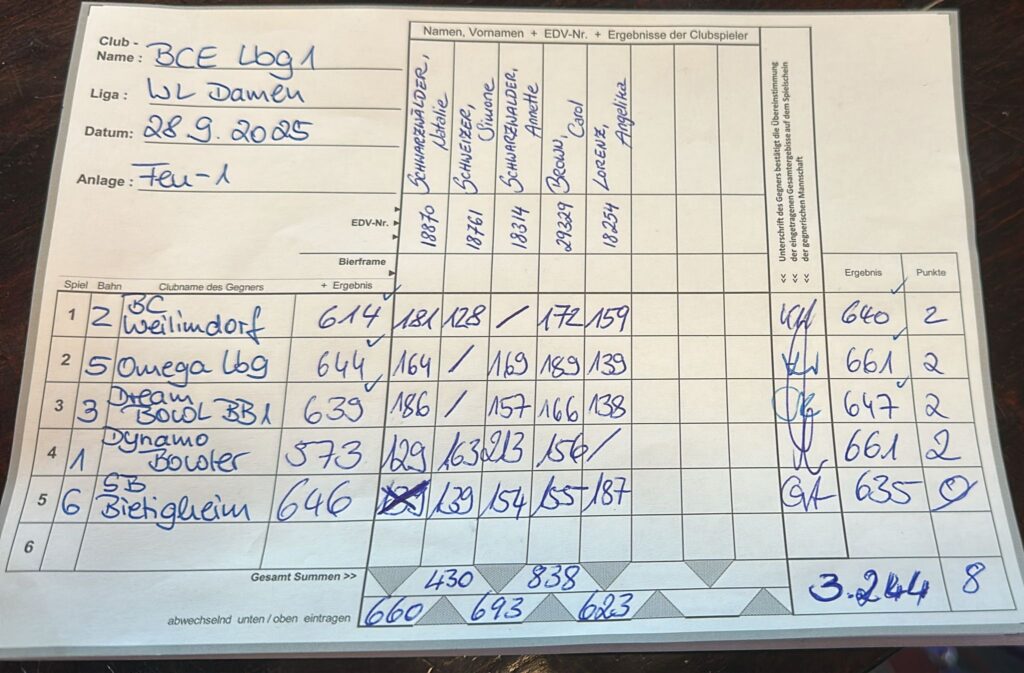 Club -
Name : BCE Lbg 1
Liga : WL Damen
Datum: 28.9.2025
Anlage : Feu-1
Namen, Vornamen + EDV-Nr. + Ergebnisse der Clubspieler
SCHWARZWÄLDER, Natalie
SCHWEIZER, Simone
SCHWARZWALDER, Annette
BROWN, Carol
LORENZ, Angelika
<< Unterschrift des Gegners bestätigt die Übereinstimmung
<< der eingetragenen Gesamtergebisse auf dem Spielschein
<< der gegnerischen Mannschaft
EDV-Nr. 18870 18761 18314 29329 18254
Bierframe
Spiel Bahn Clubname des Gegners + Ergebnis Ergebnis Punkte
1 2 BC Weilimdorf 614 181 128 / 172 159 640 2
2 5 Omega Lbg 644 164 / 169 189 139 661 2
3 3 Dream Bowl BB1 639 186 / 157 166 138 647 2
4 1 Dynamo Bowler 573 129 163 213 156 / 661 2
5 6 SB Bietigheim 646 139 154 155 187 635 0
6
Gesamt Summen >> 430 838 3.244 8
abwechselnd unten / oben eintragen 660 693 623